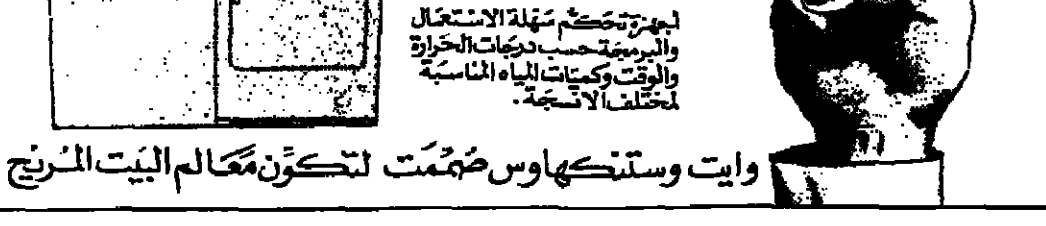 أجهزة تحكم سهلة الاستعمال
والبرمجة حسب درجات الحرارة
والوقت وكميات المياه المناسبة
لمختلف الأنسجة.
وايت وستنكهاوس صُمّمَت لتكوّن مَعَالم البَيت المُريح